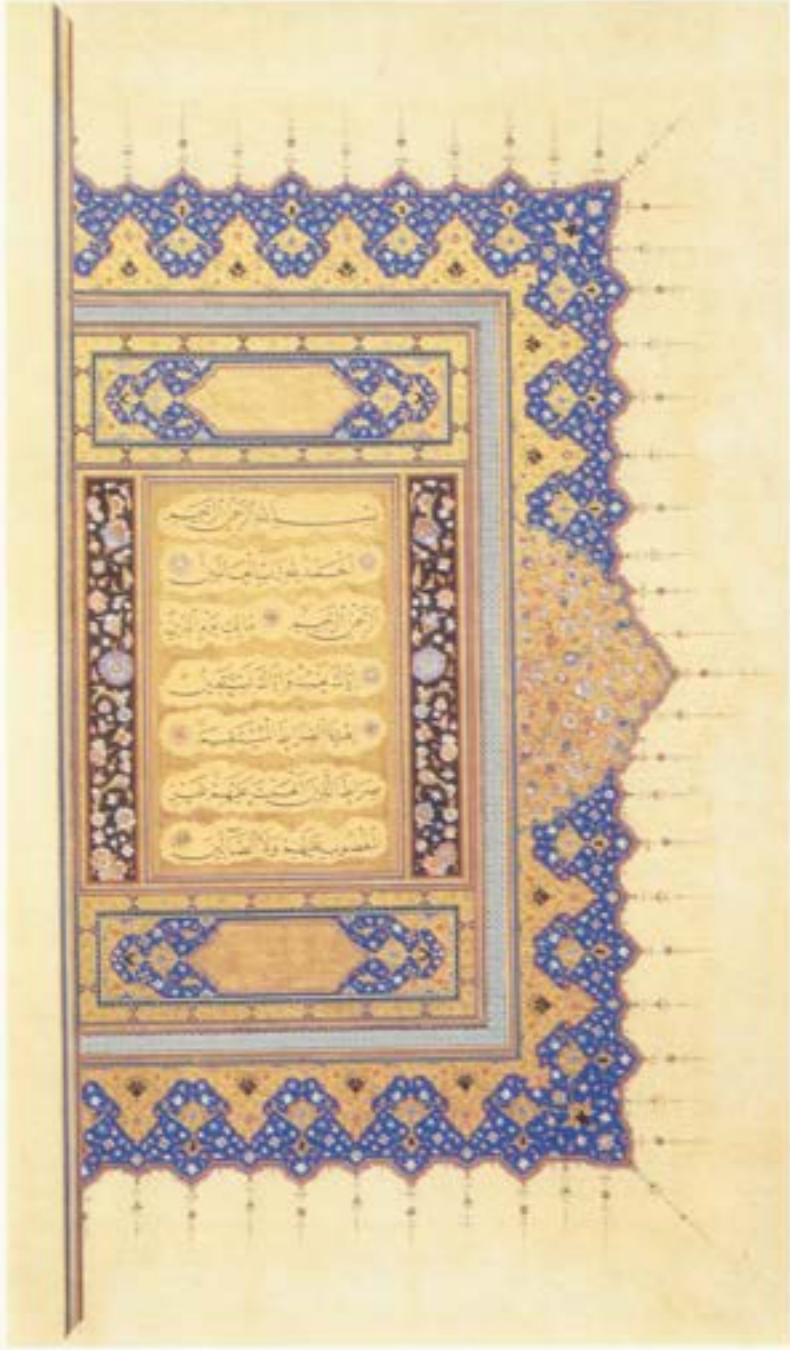 بسم الله الرحمن الرحيم
الحمد لله رب العالمين
الرحمن الرحيم مالك يوم الدين
إياك نعبد وإياك نستعين
اهدنا الصراط المستقيم
صراط الذين أنعمت عليهم غير
المغضوب عليهم ولا الضالين